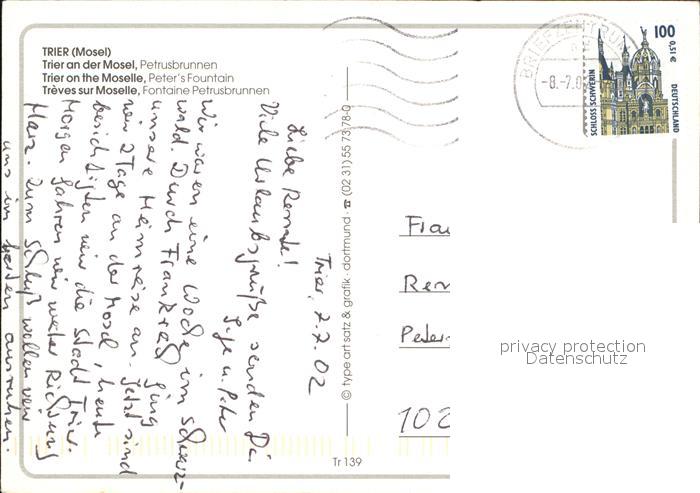 TRIER (Mosel)
Trier an der Mosel, Petrusbrunnen
Trier on the Moselle, Peter's Fountain
Trèves sur Moselle, Fontaine Petrusbrunnen
Trier, 7.7.02
Liebe Renate!
Viele Urlaubsgrüße senden Dir
Inge u. Peter
Wir waren eine Woche im Schwarz-
wald. Durch Frankreich ging
unsere Heimreise an. Jetzt sind
wir 2 Tage an der Mosel, heute
besichtigten wir die Stadt Trier.
Morgen fahren wir weiter Richtung
Harz. Zum Schluß wollen wir
uns im Garten ausruhen.
© type art satz & grafik · dortmund · ☎ (02 31) 55 73 78-0
Tr 139
BRIEFZENTRUM
-8.-7.0
100
0,51 €
SCHLOSS SCHWERIN
DEUTSCHLAND
Frau
Ren
Peter-
102
privacy protection
Datenschutz